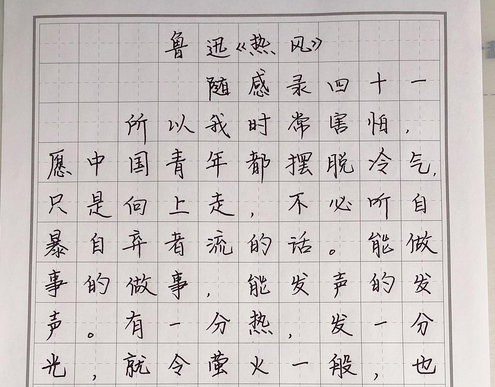 鲁迅《热风》
随感录四十一
所以我时常害怕,
愿中国青年都摆脱冷气,
只是向上走,不必听自
暴自弃者流的话。能做
事的做事,能发声的发
声。有一分热,发一分
光,就令萤火一般,也